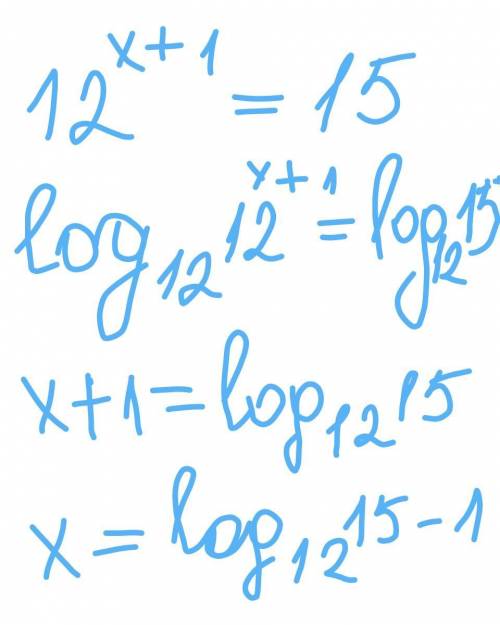 12^{x+1} = 15
log_{12} 12^{x+1} = log_{12} 15
x+1 = log_{12} 15
x = log_{12} 15 - 1